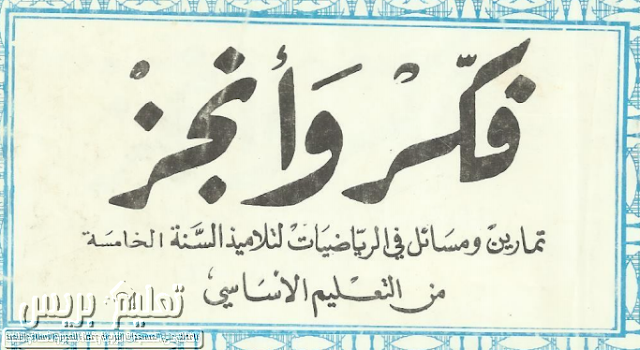 فكّرْ وَأنجزْ
تمارين ومسائل في الرياضيات لتلاميذ السَّنة الخامسة
من التعليم الأساسي
تعليم بريس